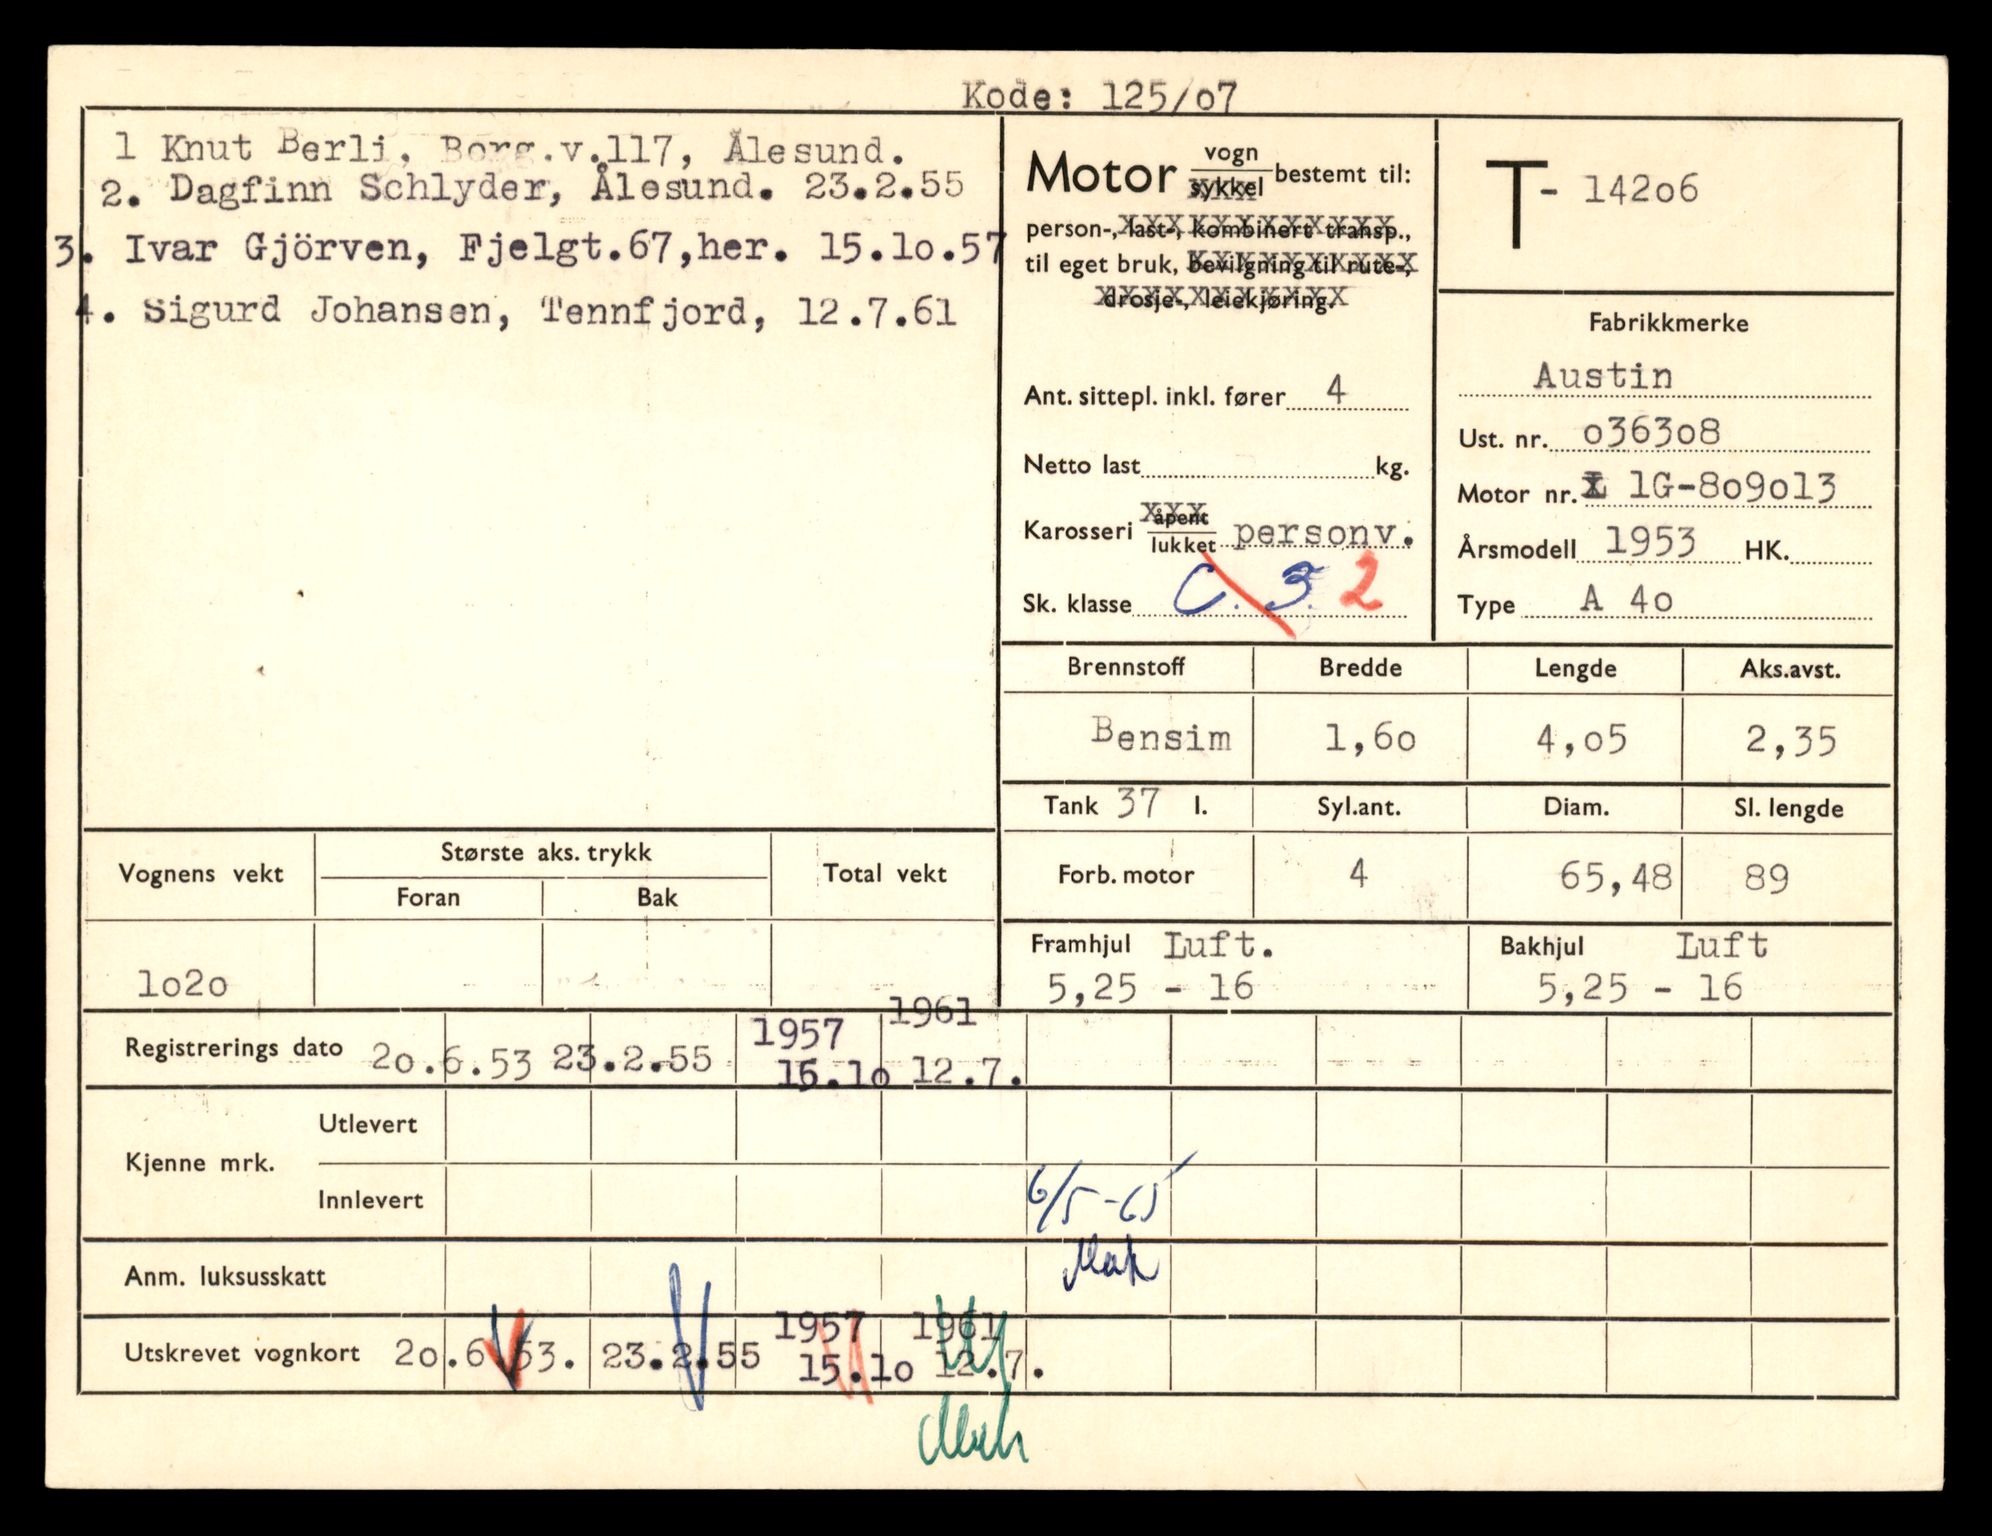 Kode: 125/o7
1 Knut Berli, Borg.v.117, Ålesund.
2. Dagfinn Schlyder, Ålesund. 23.2.55
3. Ivar Gjörven, Fjelgt.67,her. 15.1o.57
4. Sigurd Johansen, Tennfjord, 12.7.61
Motor vogn/sykkel bestemt til:
person-, last-, kombinert transp.,
til eget bruk, bevilgning til rute-,
drosje-, leiekjøring.
Ant. sittepl. inkl. fører 4
Netto last kg.
Karosseri åpent/lukket personv.
Sk. klasse C. 3. 2
T- 142o6
Fabrikkmerke
Austin
Ust. nr. o363o8
Motor nr. 1G-8o9o13
Årsmodell 1953 HK.
Type A 4o
Brennstoff Bredde Lengde Aks.avst.
Bensim 1,6o 4,o5 2,35
Tank 37 l. Syl.ant. Diam. Sl. lengde
Forb. motor 4 65,48 89
Framhjul Luft. Bakhjul Luft
5,25 - 16 5,25 - 16
Vognens vekt Største aks. trykk Total vekt
Foran Bak
1o2o
1957 1961
Registrerings dato 2o.6.53 23.2.55 15.1o 12.7.
Kjenne mrk.
Utlevert
Innlevert 6/5-65
Anm. luksusskatt
1957 1961
Utskrevet vognkort 2o.6.53. 23.2.55 15.1o 12.7.